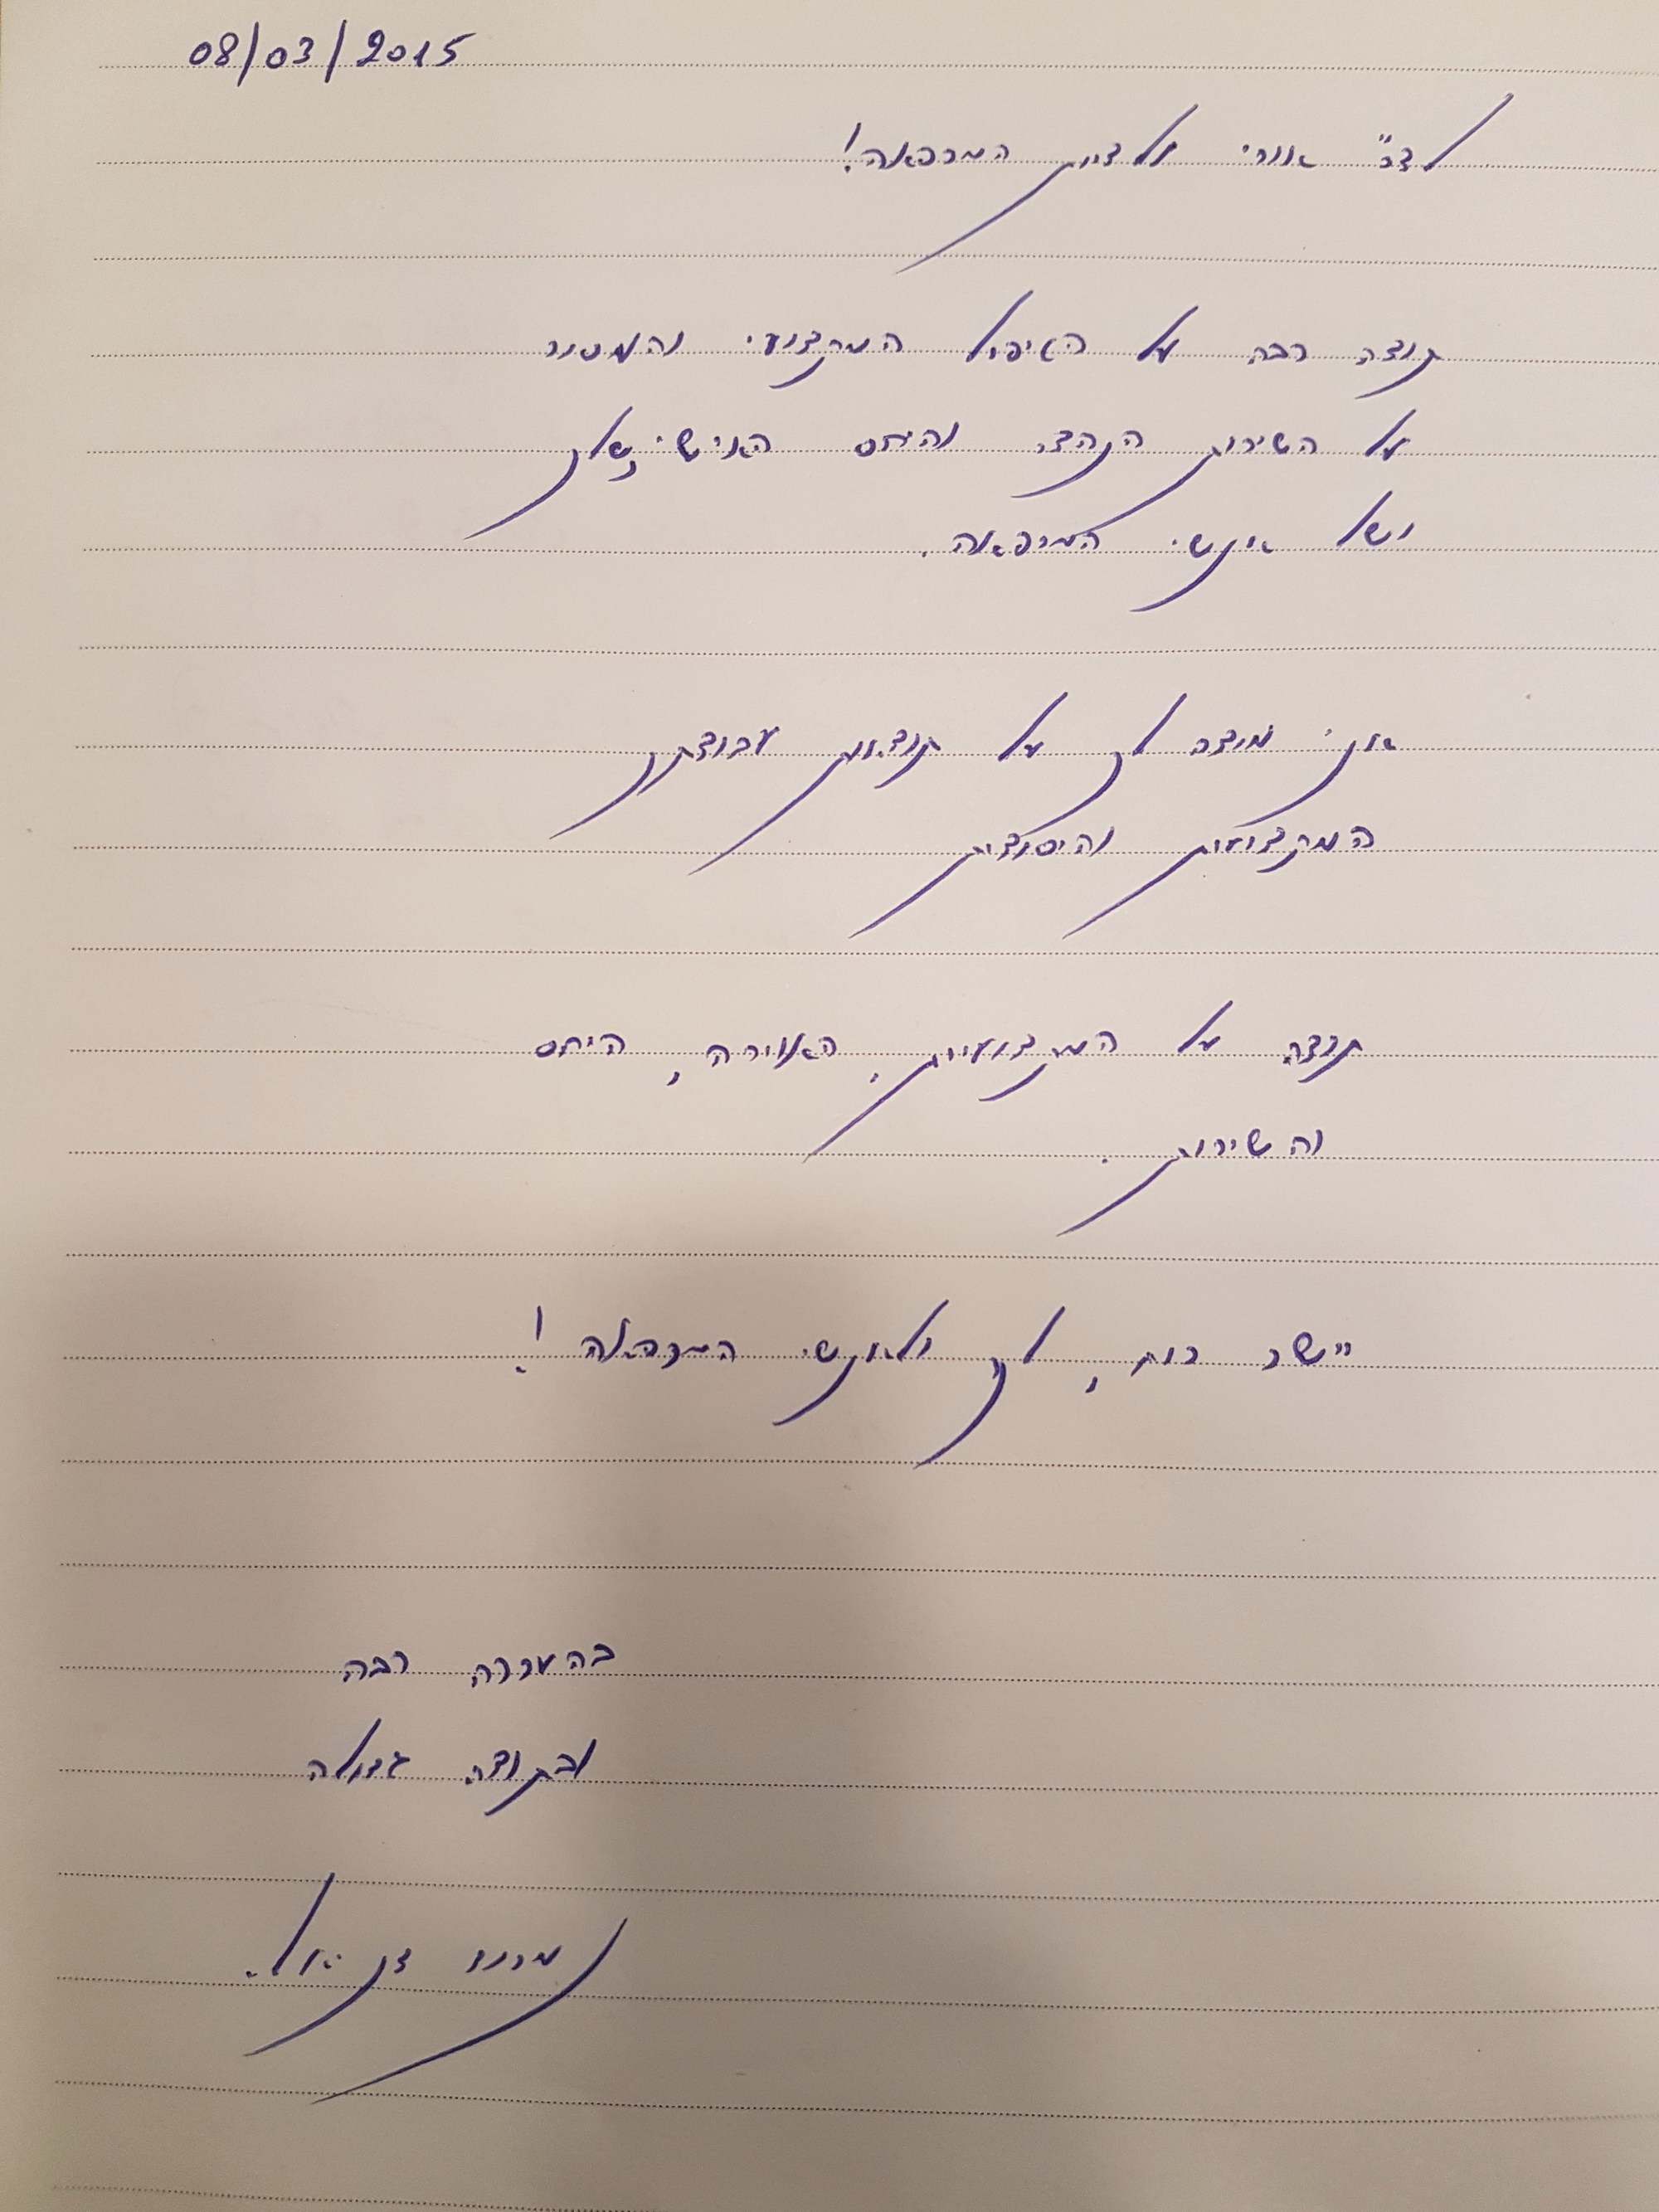 08/03/2015
לדר" אורי ולצוות המרפאה!
תודה רבה על הטיפול המקצועי והמסור
על השירות הנהדר והיחס האישי שלך
ושל אנשי המרפאה.
אני מודה לך על תוצאות עבודתך
המקצועית והיסודית
תודה על המקצועיות, האווירה, היחס
והשירות.
יישר כוח, לך ולאנשי המרפאה!
בהערכה רבה
ובתודה גדולה